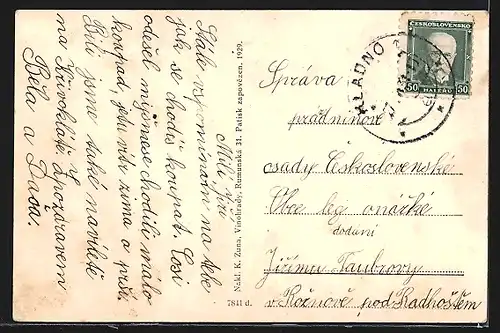 Milý Jiří
Stále vzpomínám na tebe
jak se chodíš koupat. Cosi
odešel my jsme chodili málo
koupat, jelikož zima a prší.
Byli jsme také navštívit
na Křivoklátě. S pozdravem
Běla a Dáda.
Nakl. K. Zuna, Vinohrady, Rumunská 31. Patisk zapovězen. 1929.
7841 d.
ČESKOSLOVENSKO
50 HALÉŘŮ 50
KLADNO 1
Správa
prázdninové
osady Československé
Obce
dodání
Jiřímu Taubrovy
v Rožnově pod Radhoštěm